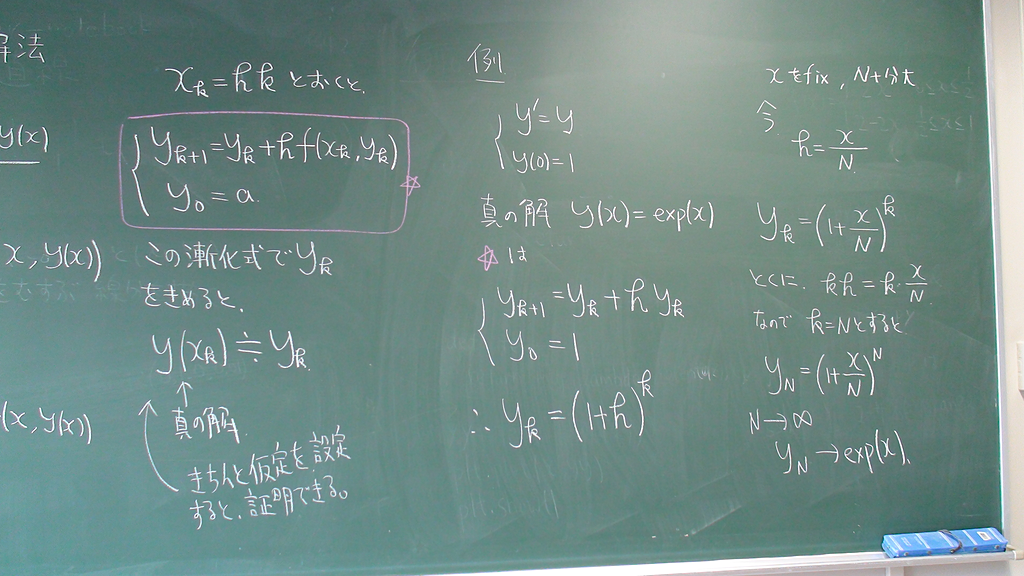 解法
y(x)
x, y(x))
(x, y(x))
x_k = hk とおくと、
{ y_{k+1} = y_k + h f(x_k, y_k)
y_0 = a. ☆
この漸化式で y_k
をきめると、
y(x_k) ≒ y_k.
↑
真の解
きちんと仮定を設定
すると、証明できる。
例
{ y' = y
y(0) = 1
真の解 y(x) = exp(x)
☆ は
{ y_{k+1} = y_k + h y_k
y_0 = 1
∴ y_k = (1+h)^k
xをfix, N+分大
今
h = x/N
y_k = (1 + x/N)^k
とくに、 kh = k x/N
なので k=Nとすると
y_N = (1 + x/N)^N
N → ∞
y_N → exp(x).